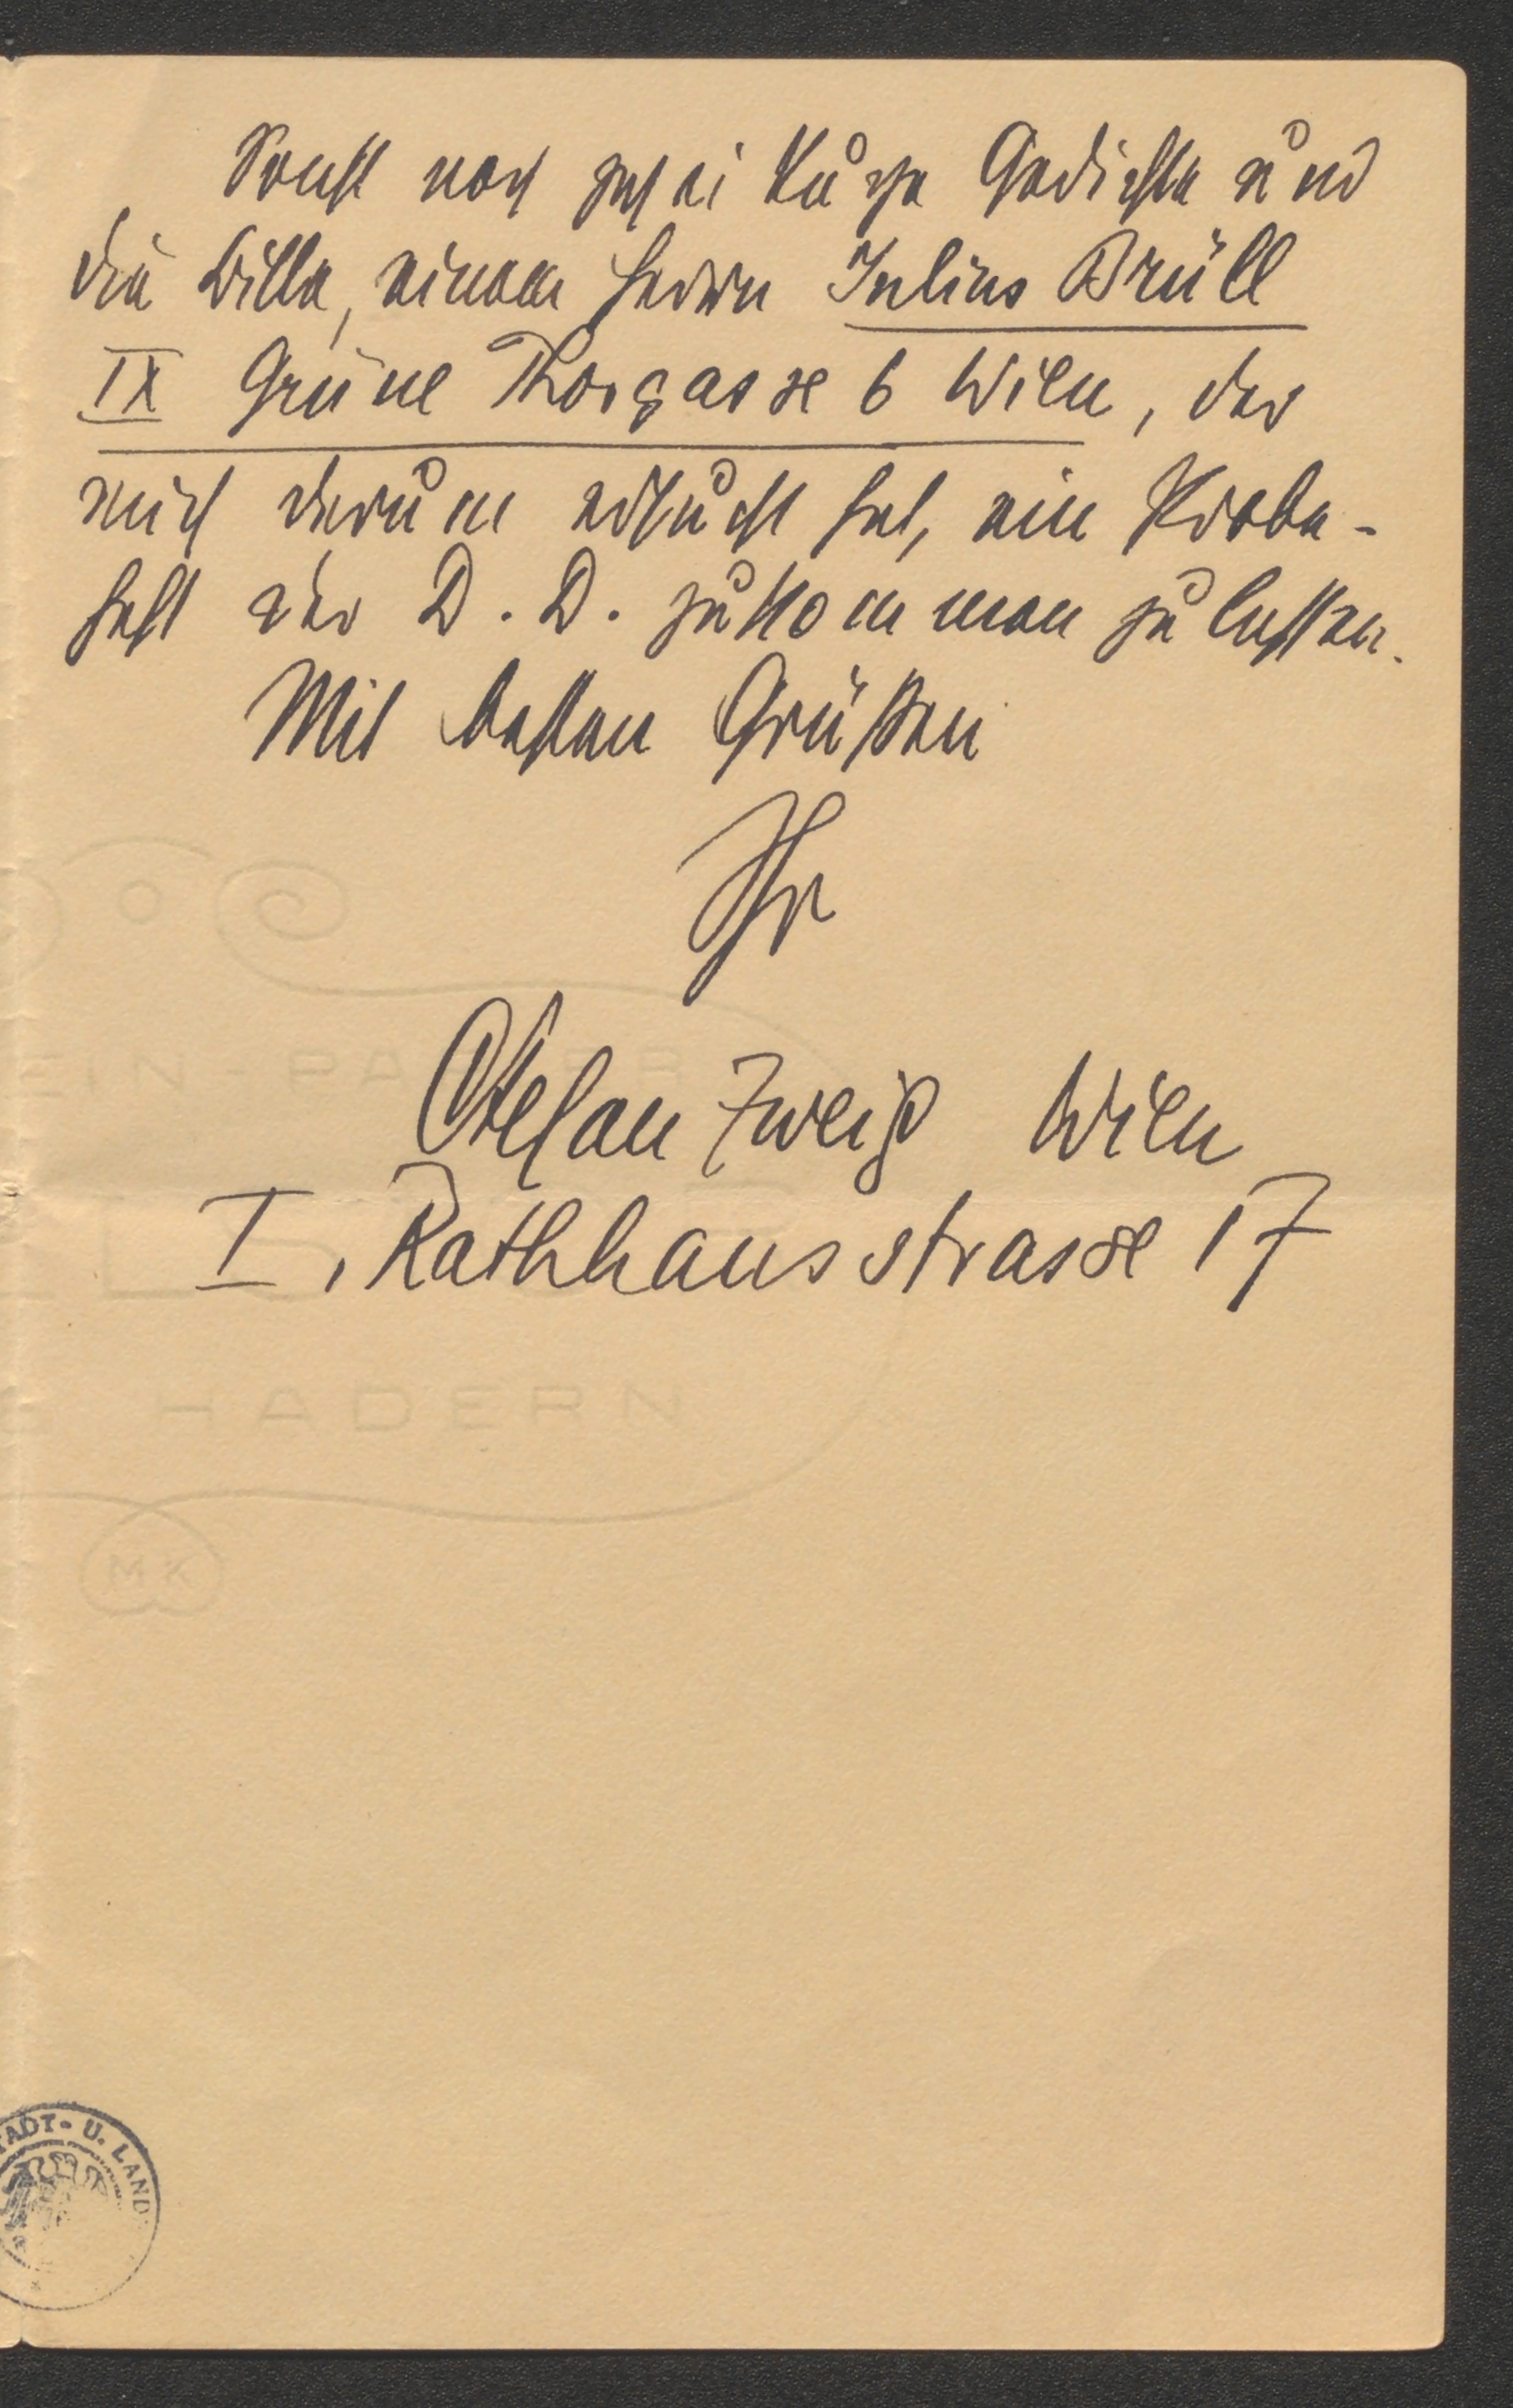 Sonst noch zwei kurze Gedichte und
die Bitte, einem Herrn Julius Brüll
IX Grüne Thorgasse 6 Wien, der
mich darum ersucht hat, ein Probe-
heft der D. D. zukommen zu lassen.
Mit besten Grüßen
Ihr
Stefan Zweig Wien
I, Rathhausstrasse 17
HADERN
MK
STADT- U. LAND